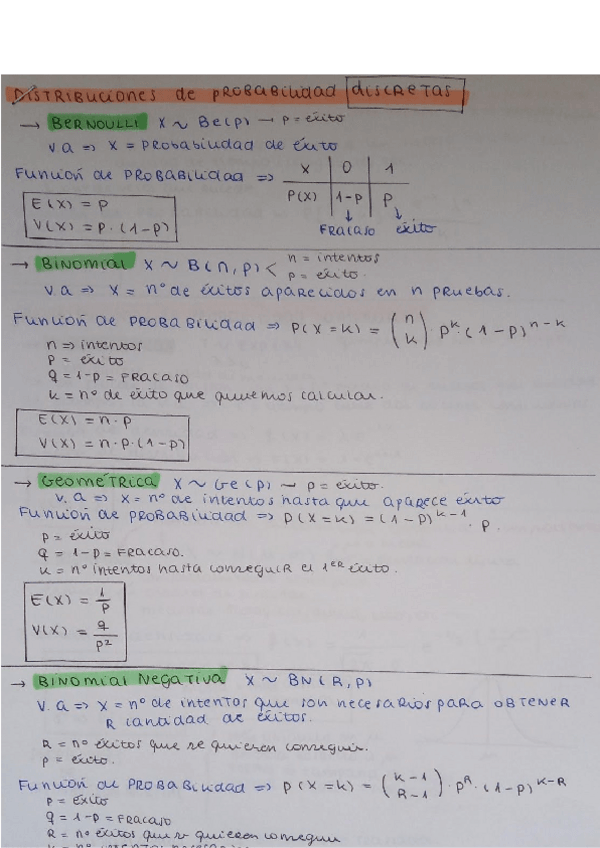 DISTRIBUCIONES de PROBABILIDAD DISCRETAS
→ BERNOULLI X ~ Be(p) → p = éxito
v.a => X = probabilidad de éxito
Función de PROBABILIDAD => X 0 1
P(X) 1-p p
Fracaso éxito
E(X) = p
V(X) = p·(1-p)
→ BINOMIAL X ~ B(n,p) < n = intentos
p = éxito.
v.a => X = nº de éxitos aparecidos en n pruebas.
Función de PROBABILIDAD => P(X=k) = (n k) p^k·(1-p)^n-k
n => intentos
p = éxito
q = 1-p = FRACASO
k = nº de éxito que queremos calcular.
E(X) = n·p
V(X) = n·p·(1-p)
→ GEOMÉTRICA X ~ Ge(p) ~ p = éxito.
v.a => X = nº de intentos hasta que aparece éxito
Función de PROBABILIDAD => P(X=k) = (1-p)^k-1 · p.
p = éxito
q = 1-p = FRACASO.
k = nº intentos hasta conseguir el 1ER éxito.
E(X) = 1/p
V(X) = q/p²
→ BINOMIAL Negativa X ~ BN(R,p)
v.a => X = nº de intentos que son necesarios para OBTENER
R cantidad de éxitos.
R = nº éxitos que se quieren conseguir.
p = éxito.
Función de PROBABILIDAD => P(X=k) = (k-1 R-1)·p^R·(1-p)^k-R
p = éxito
q = 1-p = FRACASO
R = nº éxitos que se quieren conseguir